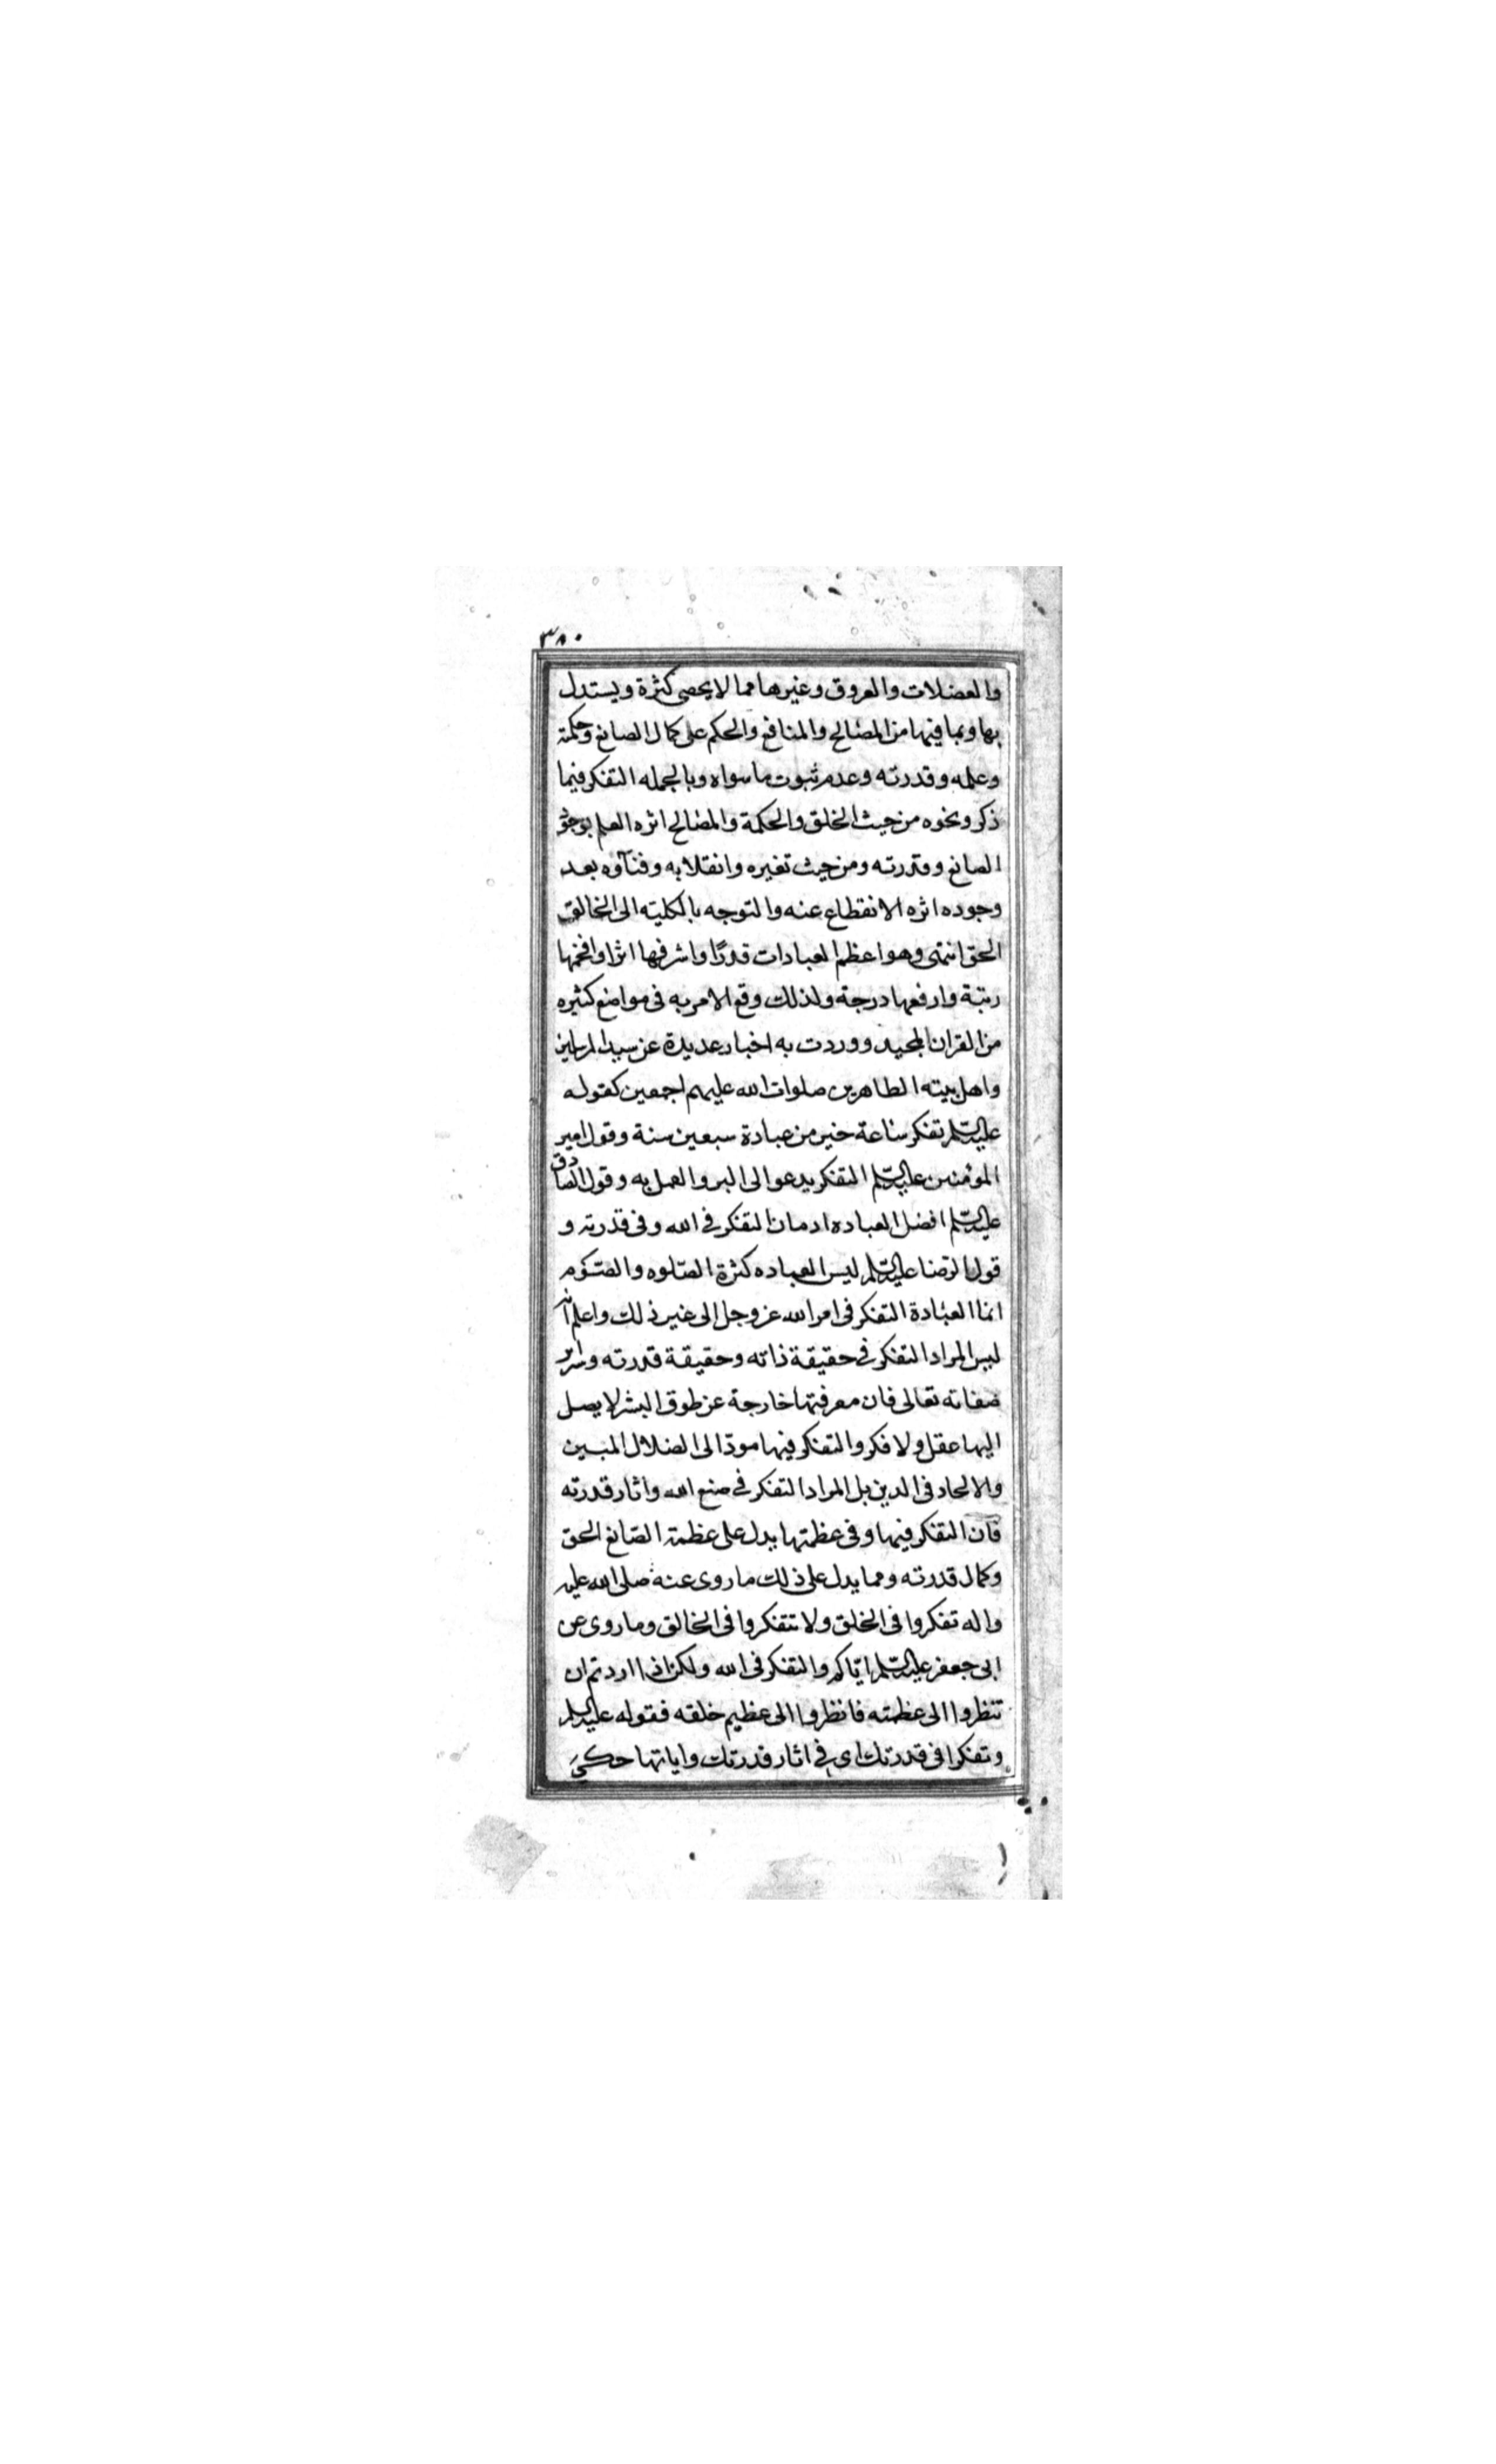 ٣٨٠
والعضلات والعروق وغيرها مما لا يحصى كثرة ويستدل
بها وبما فيها من المصالح والمنافع والحكم على كمال الصانع وحكمته
وعلمه وقدرته وعدم ثبوت ما سواه وبالجمله التفكر فيما
ذكر ونحوه من حيث الخلق والحكمة والمصالح اثره العلم بوجود
الصانع وقدرته ومن حيث تغيره وانقلابه وفناؤه بعد
وجوده اثره الانقطاع عنه والتوجه بالكليته الى الخالق
الحق انتهى وهو اعظم العبادات قدرًا واشرفها اثرا وافخمها
رتبة وارفعها درجة ولذلك وقع الامر به فى مواضع كثيره
من القران المجيد ووردت به اخبار عديدة عن سيد المرسلين
واهل بيته الطاهرين صلوات الله عليهم اجمعين كقوله
عليه السلم تفكر ساعة خير من عبادة سبعين سنة وقول امير
المؤمنين عليه السلم التفكر يدعو الى البر والعمل به وقول الصادق
عليه السلم افضل العباده ادمان التفكر فى الله وفى قدرته و
قول الرضا عليه السلم ليس العباده كثرة الصّلوه والصّوم
انما العبادة التفكر فى امر الله عز وجل الى غير ذلك واعلم انه
ليس المراد التفكر فى حقيقة ذاته وحقيقة قدرته وساير
صفاته تعالى فان معرفتها خارجة عن طوق البشر لا يصل
اليها عقل ولا فكر والتفكر فيها مودّ الى الضلال المبين
والالحاد فى الدين بل المراد التفكر فى صنع الله واثار قدرته
فان التفكر فيها وفى عظمتها يدل على عظمة الصّانع الحق
وكمال قدرته ومما يدل على ذلك ما روى عنه صلى الله عليه
واله تفكروا فى الخلق ولا تتفكروا فى الخالق وما روى عن
ابى جعفر عليه السلم ايّاكم والتفكر فى الله ولكن اذا اردتم ان
تنظروا الى عظمته فانظروا الى عظيم خلقه فقوله عليه السلم
وتفكرا فى قدرتك اى فى اثار قدرتك واياتها حكى